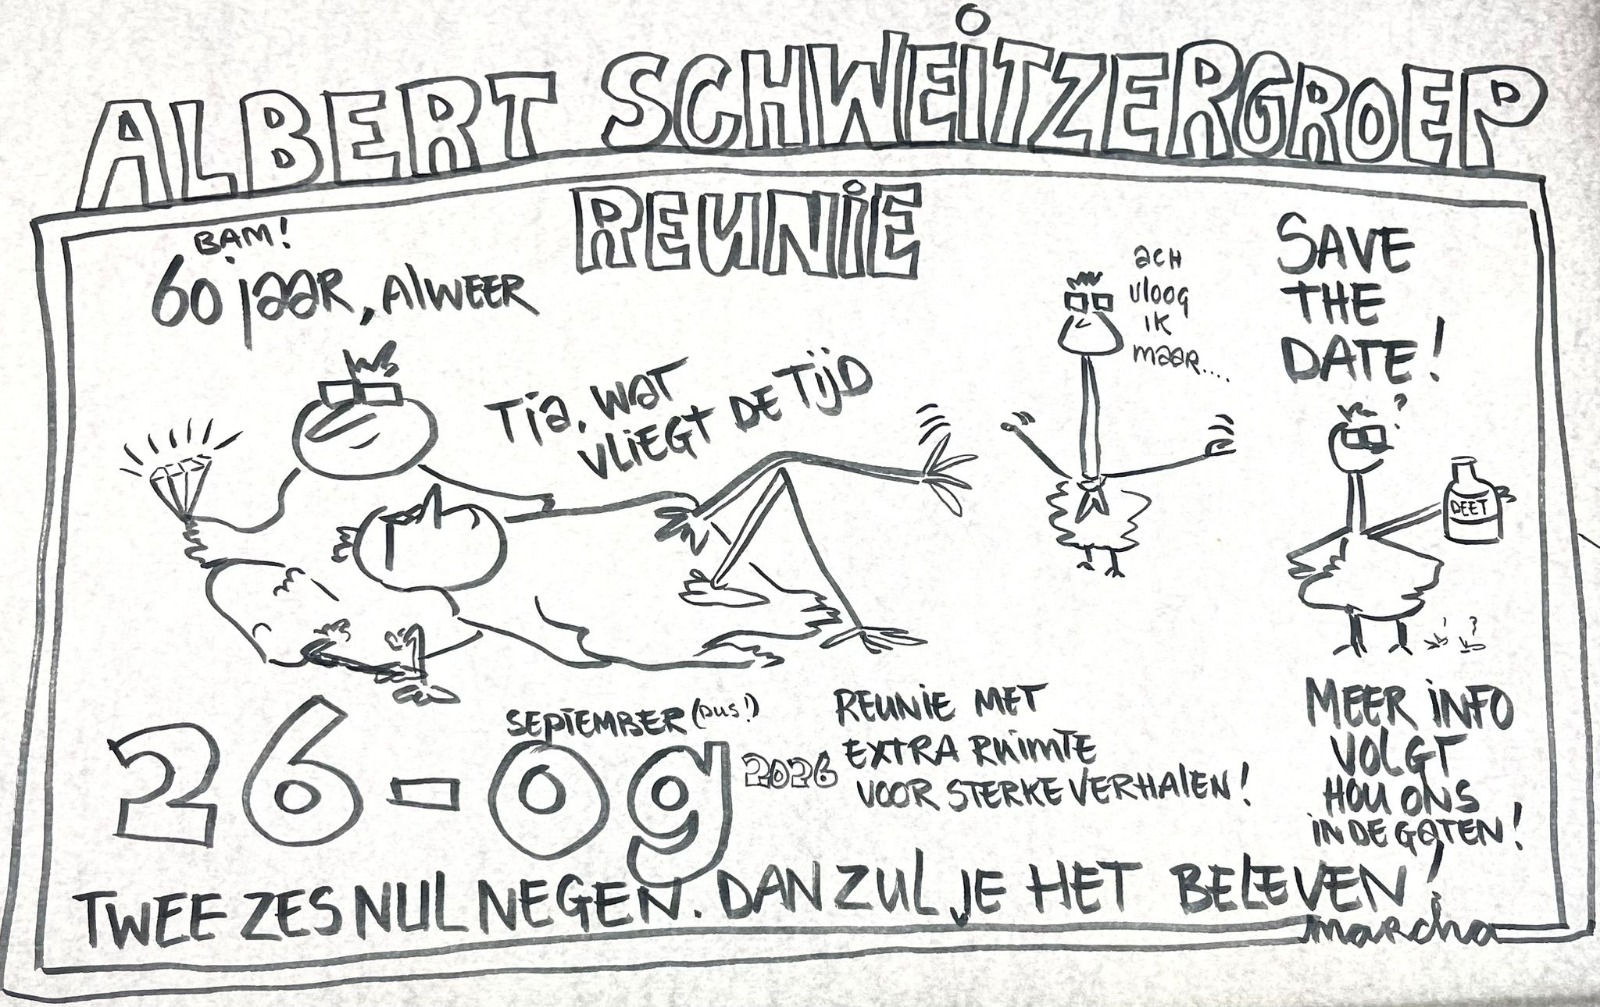 ALBERT SCHWEITZERGROEP
REUNIE
BAM!
60 jaar, AlWEER
Tja, wat
vliegt de tijd
ach
vloog
ik
maar....
SAVE
THE
DATE!
?
DEET
! ?
SEPTEMBER (dus!)
26-09 2026
REUNIE MET
EXTRA RUIMTE
VOOR STERKE VERHALEN!
MEER INFO
VOLGT
HOU ONS
IN DE GATEN!
TWEE ZES NUL NEGEN. DAN ZUL JE HET BELEVEN!
marcha